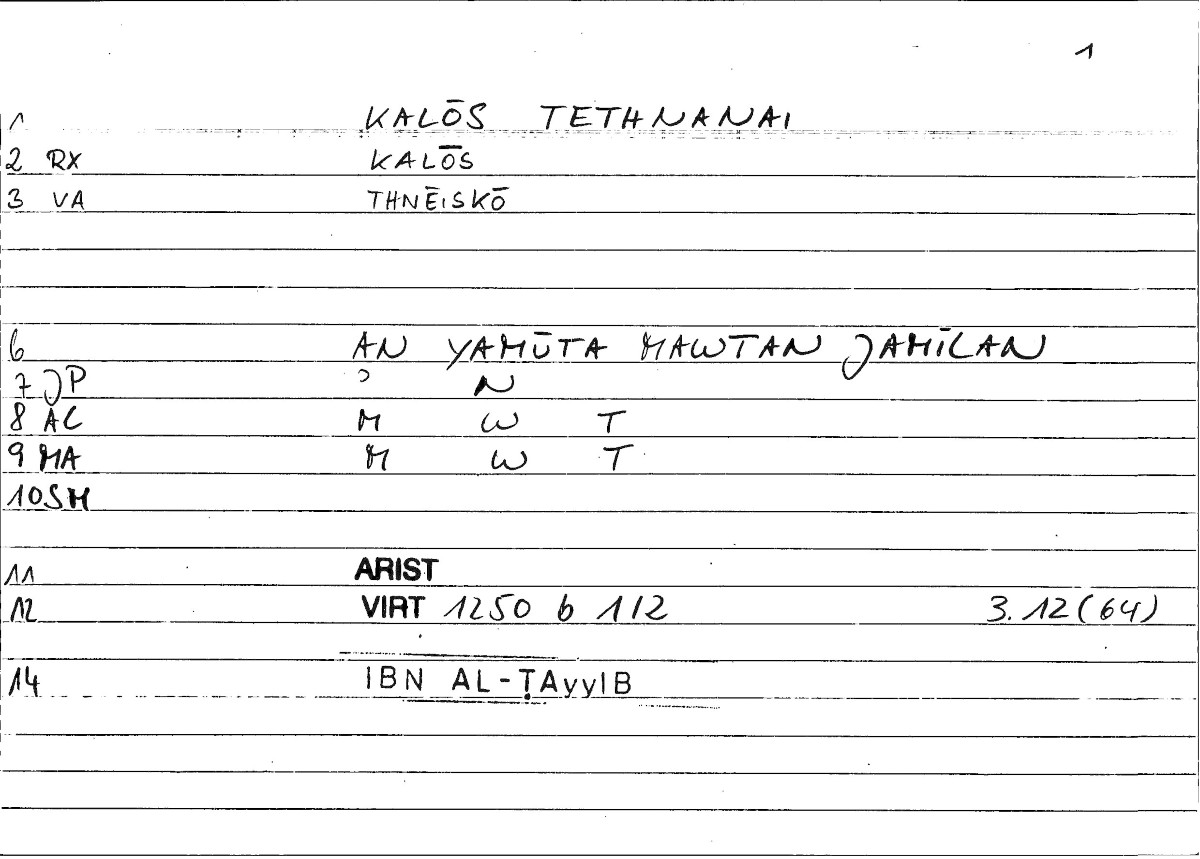 1
1 KALŌS TETHNANAI
2 RX KALŌS
3 VA THNĒISKŌ
6 AN YAMŪTA MAWTAN JAMĪLAN
7 JP ʾ N
8 AC M W T
9 MA M W T
10 SM
11 ARIST
12 VIRT 1250 b 1/2 3.12(64)
14 IBN AL-ṬAyyIB